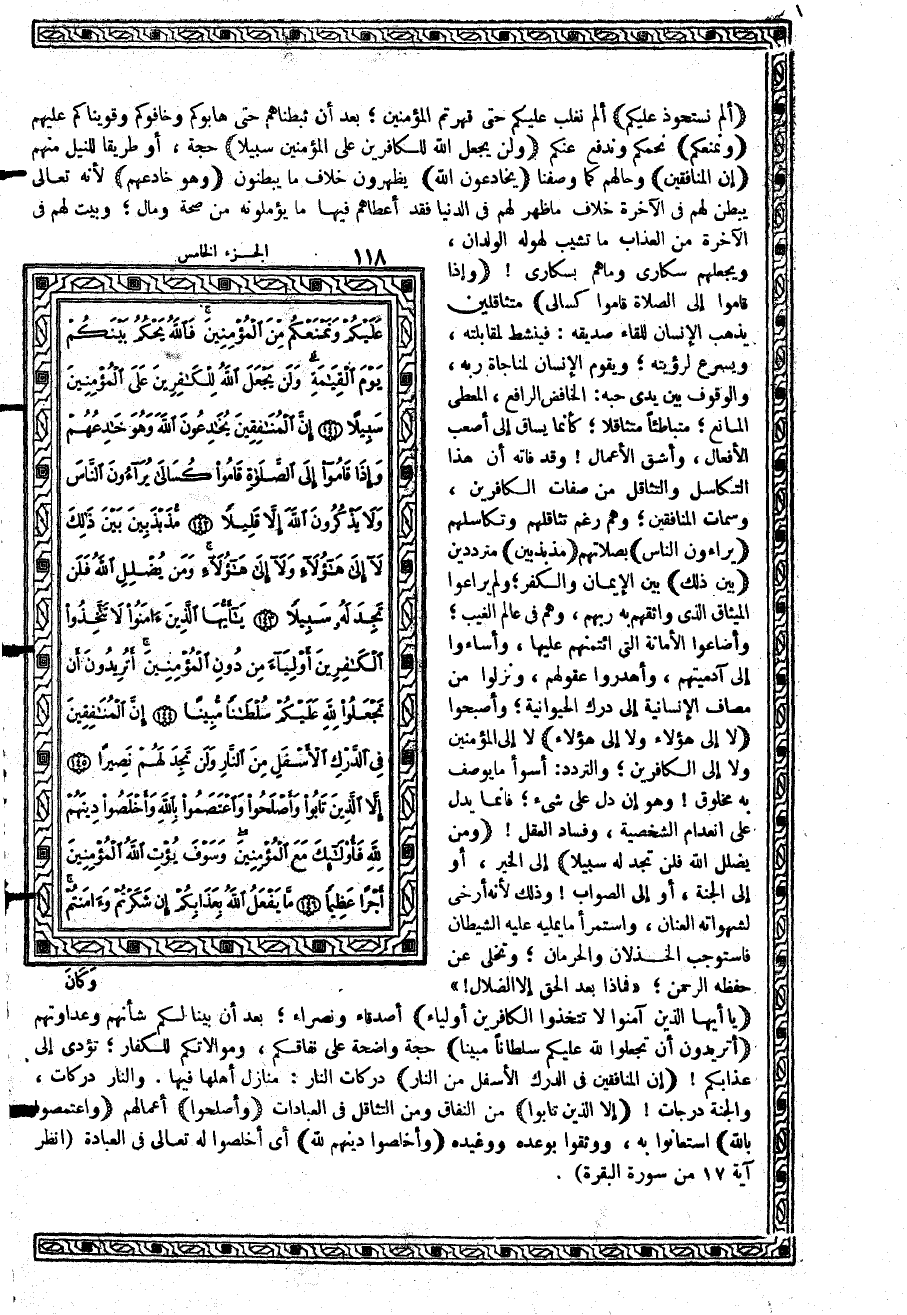 ﴿ألم نستحوذ عليكم﴾ ألم نغلب عليكم حتى قهرتم المؤمنين ؛ بعد أن ثبطناهم حتى هابوكم وخافوكم وقويناكم عليهم
﴿ونمنعكم﴾ نحمكم وندفع عنكم ﴿ولن يجعل الله للكافرين على المؤمنين سبيلا﴾ حجة ، أو طريقا للنيل منهم
﴿إن المنافقين﴾ وحالهم كما وصفنا ﴿يخادعون الله﴾ يظهرون خلاف ما يبطنون ﴿وهو خادعهم﴾ لأنه تعالى
يبطن لهم فى الآخرة خلاف ماظهر لهم فى الدنيا فقد أعطاهم فيها ما يؤملونه من صحة ومال ؛ وبيت لهم فى
الآخرة من العذاب ما تشيب لهوله الولدان ،
ويجعلهم سكارى وماهم بسكارى ! ﴿وإذا
قاموا إلى الصلاة قاموا كسالى﴾ متثاقلين
يذهب الإنسان للقاء صديقه : فينشط لمقابلته ،
ويسرع لرؤيته ؛ ويقوم الإنسان لمناجاة ربه ،
والوقوف بين يدى حبه: الخافض الرافع ، المعطى
المانع ؛ متباطئاً متثاقلا ؛ كأنما يساق إلى أصعب
الأفعال ، وأشق الأعمال ! وقد فاته أن هذا
التكاسل والتثاقل من صفات الكافرين ،
وسمات المنافقين ؛ وهم رغم تثاقلهم وتكاسلهم
﴿يراءون الناس﴾ بصلاتهم ﴿مذبذبين﴾ مترددين
﴿بين ذلك﴾ بين الإيمان والكفر؛ ولم يراعوا
الميثاق الذى واثقهم به ربهم ، وهم فى عالم الغيب ؛
وأضاعوا الأمانة التى ائتمنهم عليها ، وأساءوا
إلى آدميتهم ، وأهدروا عقولهم ، ونزلوا من
مصاف الإنسانية إلى درك الحيوانية ؛ وأصبحوا
﴿لا إلى هؤلاء ولا إلى هؤلاء﴾ لا إلى المؤمنين
ولا إلى الكافرين ؛ والتردد: أسوأ مايوصف
به مخلوق ! وهو إن دل على شىء ؛ فانما يدل
على انعدام الشخصية ، وفساد العقل ! ﴿ومن
يضلل الله فلن تجد له سبيلا﴾ إلى الخير ، أو
إلى الجنة ، أو إلى الصواب ! وذلك لأنه أرخى
لشهواته العنان ، واستمرأ مايمليه عليه الشيطان
فاستوجب الخذلان والحرمان ؛ وتخلى عن
حفظه الرحمن ؛ «فماذا بعد الحق إلا الضلال!»
١١٨ الجزء الخامس
عَلَيْكُمْ وَنَمْنَعْكُم مِّنَ ٱلْمُؤْمِنِينَ ۚ فَٱللَّهُ يَحْكُمُ بَيْنَكُمْ
يَوْمَ ٱلْقِيَٰمَةِ ۗ وَلَن يَجْعَلَ ٱللَّهُ لِلْكَٰفِرِينَ عَلَى ٱلْمُؤْمِنِينَ
سَبِيلًا ١٤١ إِنَّ ٱلْمُنَٰفِقِينَ يُخَٰدِعُونَ ٱللَّهَ وَهُوَ خَٰدِعُهُمْ
وَإِذَا قَامُوٓا۟ إِلَى ٱلصَّلَوٰةِ قَامُوا۟ كُسَالَىٰ يُرَآءُونَ ٱلنَّاسَ
وَلَا يَذْكُرُونَ ٱللَّهَ إِلَّا قَلِيلًا ١٤٢ مُّذَبْذَبِينَ بَيْنَ ذَٰلِكَ
لَآ إِلَىٰ هَٰٓؤُلَآءِ وَلَآ إِلَىٰ هَٰٓؤُلَآءِ ۚ وَمَن يُضْلِلِ ٱللَّهُ فَلَن
تَجِدَ لَهُۥ سَبِيلًا ١٤٣ يَٰٓأَيُّهَا ٱلَّذِينَ ءَامَنُوا۟ لَا تَتَّخِذُوا۟
ٱلْكَٰفِرِينَ أَوْلِيَآءَ مِن دُونِ ٱلْمُؤْمِنِينَ ۚ أَتُرِيدُونَ أَن
تَجْعَلُوا۟ لِلَّهِ عَلَيْكُمْ سُلْطَٰنًا مُّبِينًا ١٤٤ إِنَّ ٱلْمُنَٰفِقِينَ
فِى ٱلدَّرْكِ ٱلْأَسْفَلِ مِنَ ٱلنَّارِ وَلَن تَجِدَ لَهُمْ نَصِيرًا ١٤٥
إِلَّا ٱلَّذِينَ تَابُوا۟ وَأَصْلَحُوا۟ وَٱعْتَصَمُوا۟ بِٱللَّهِ وَأَخْلَصُوا۟ دِينَهُمْ
لِلَّهِ فَأُو۟لَٰٓئِكَ مَعَ ٱلْمُؤْمِنِينَ ۖ وَسَوْفَ يُؤْتِ ٱللَّهُ ٱلْمُؤْمِنِينَ
أَجْرًا عَظِيمًا ١٤٦ مَّا يَفْعَلُ ٱللَّهُ بِعَذَابِكُمْ إِن شَكَرْتُمْ وَءَامَنتُمْ ۚ
وَكَانَ
﴿يا أيها الذين آمنوا لا تتخذوا الكافرين أولياء﴾ أصدقاء ونصراء ؛ بعد أن بينا لكم شأنهم وعداوتهم
﴿أتريدون أن تجعلوا لله عليكم سلطاناً مبينا﴾ حجة واضحة على نفاقكم ، وموالاتكم للكفار ؛ تؤدى إلى
عذابكم ! ﴿إن المنافقين فى الدرك الأسفل من النار﴾ دركات النار : منازل أهلها فيها . والنار دركات ،
والجنة درجات ! ﴿إلا الذين تابوا﴾ من النفاق ومن التثاقل فى العبادات ﴿وأصلحوا﴾ أعمالهم ﴿واعتصموا
بالله﴾ استعانوا به ، ووثقوا بوعده ووعيده ﴿وأخلصوا دينهم لله﴾ أى أخلصوا له تعالى فى العبادة (انظر
آية ١٧ من سورة البقرة) .